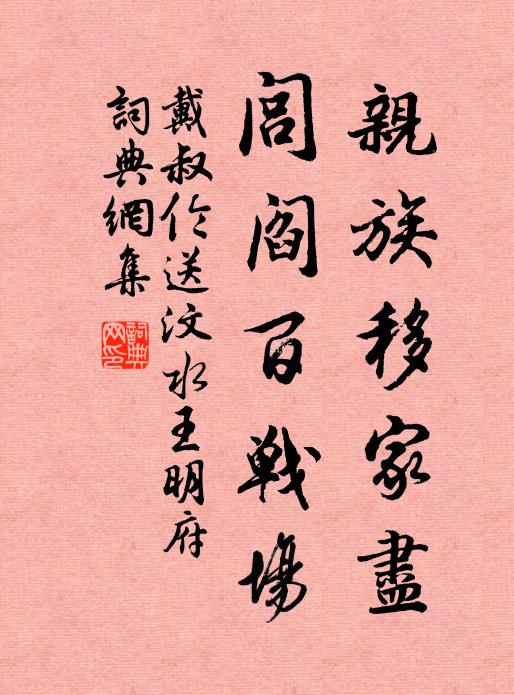 親族移家盡
閭閻百戰場
戴叔伦送汶水王明府
詞典網集
詞典
网印